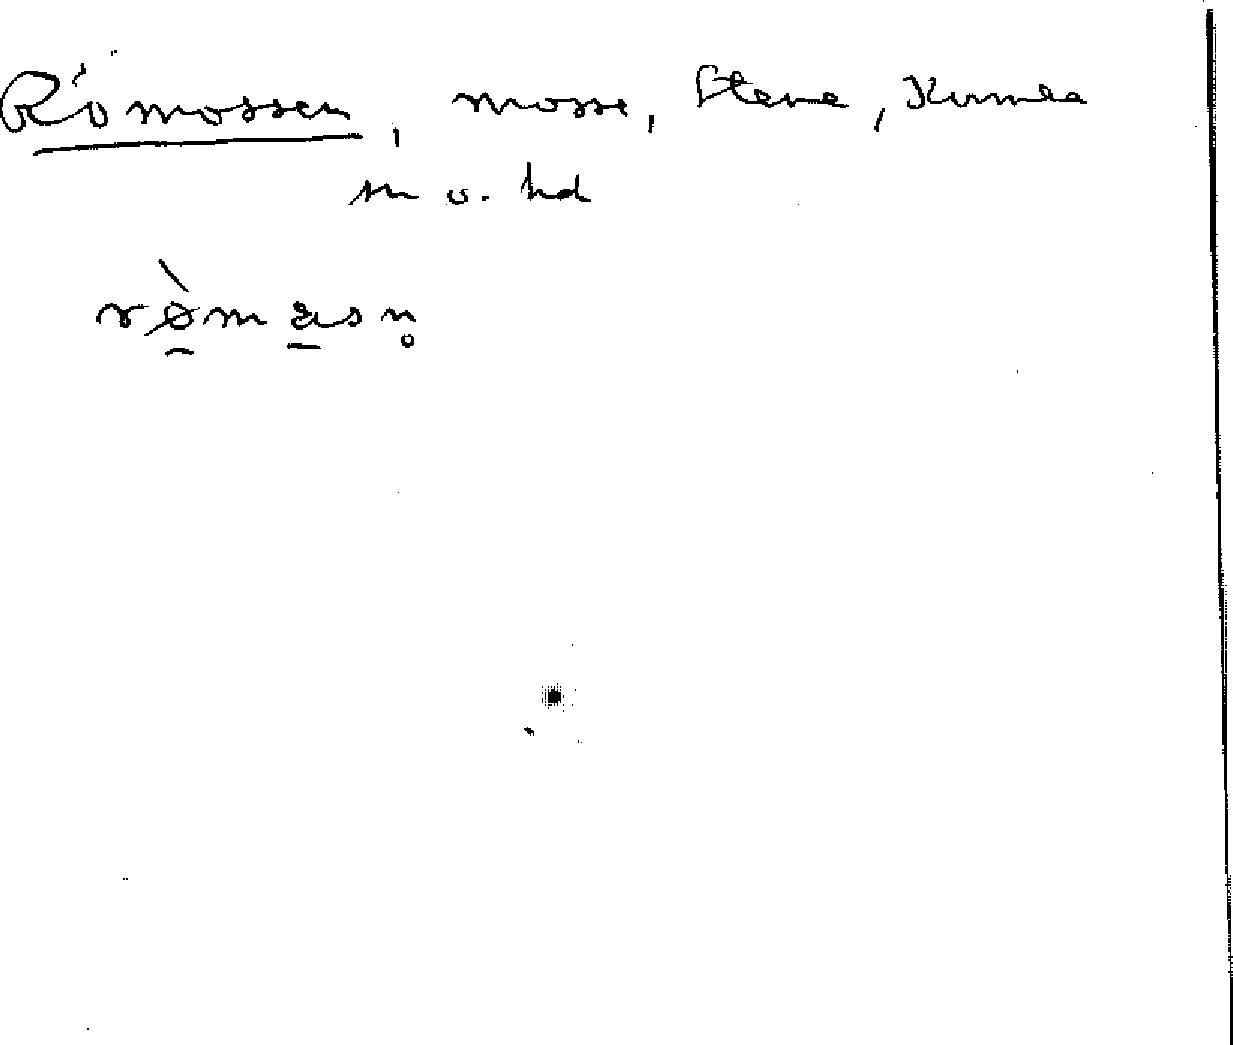 Römossen, mosse, Stene, Kumla
sn o. hd
ròmasn̥